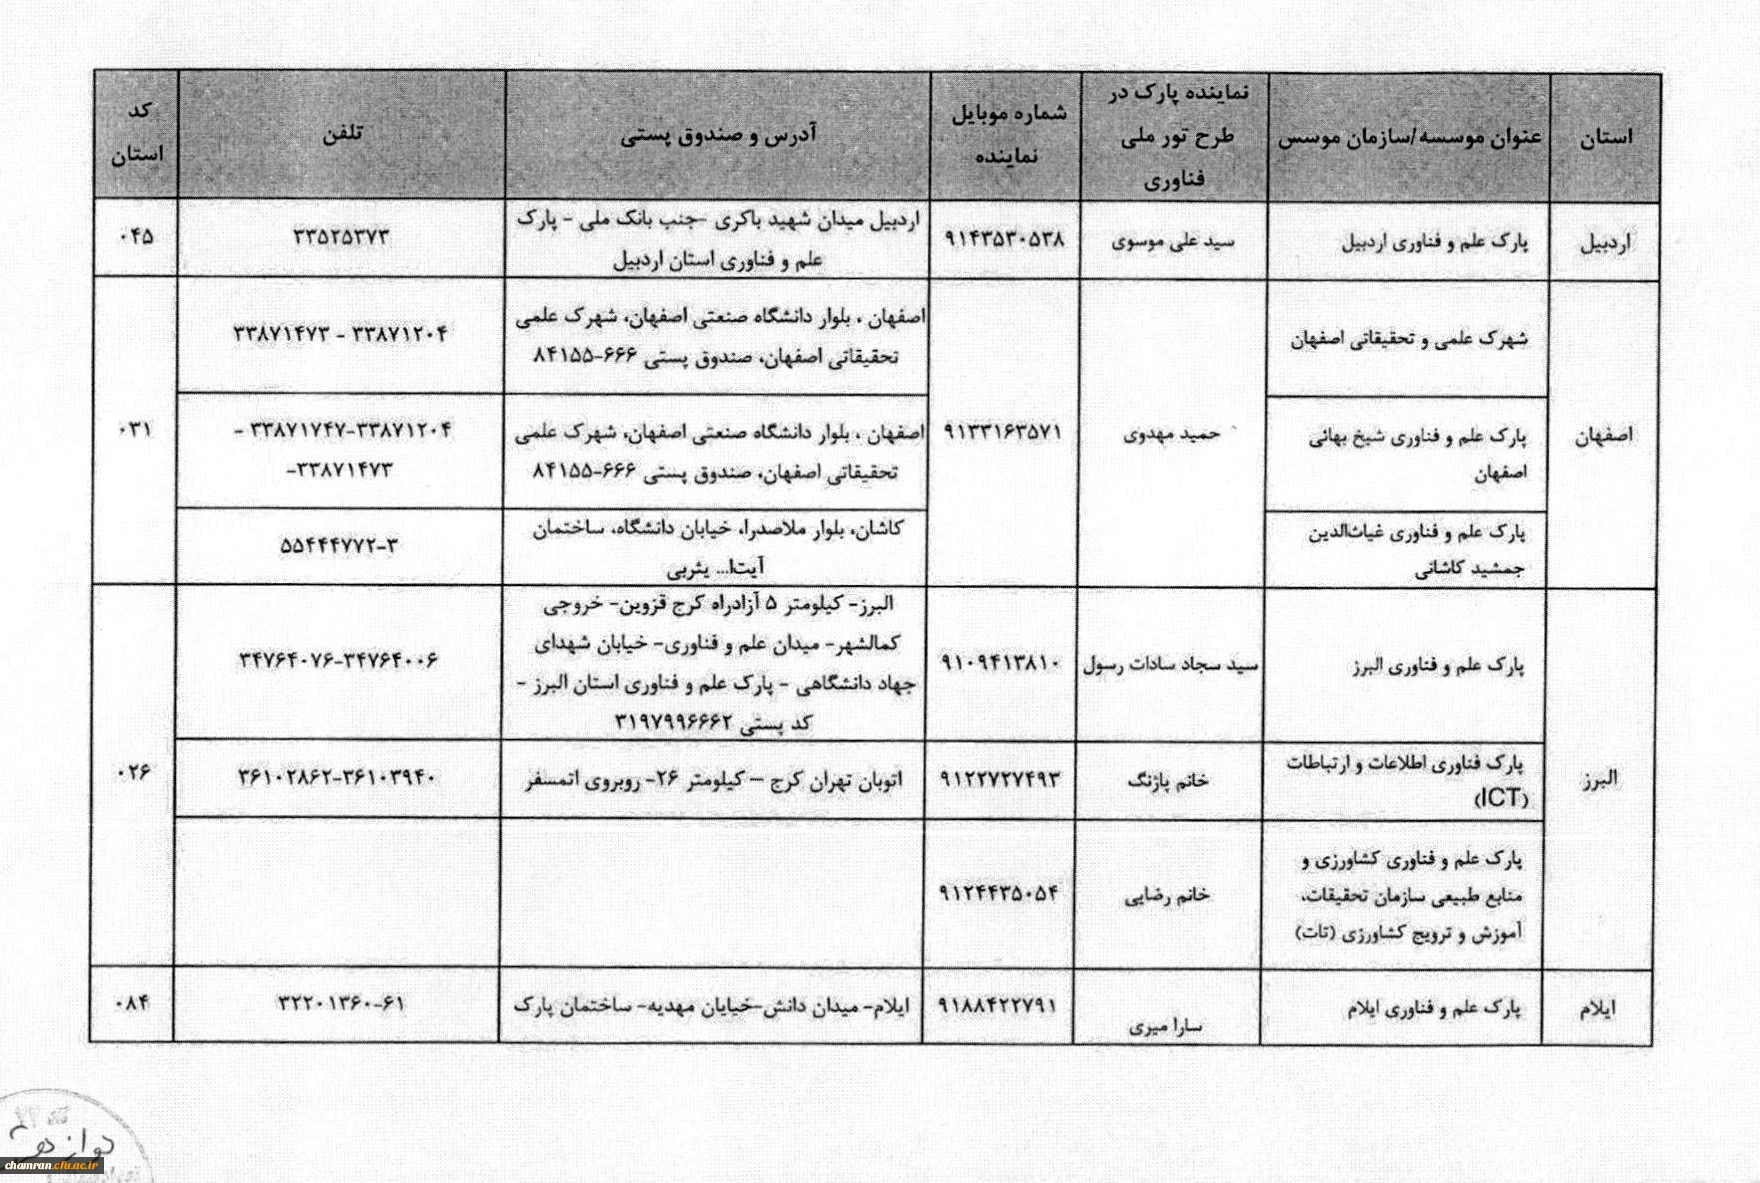 استان
عنوان موسسه/سازمان موسس
نماینده پارک در
طرح تور ملی
فناوری
شماره موبایل
نماینده
آدرس و صندوق پستی
تلفن
کد
استان
اردبیل
پارک علم و فناوری اردبیل
سید علی موسوی
۹۱۴۳۵۳۰۵۳۸
اردبیل میدان شهید باکری -جنب بانک ملی - پارک
علم و فناوری استان اردبیل
۳۳۵۲۵۳۷۳
۰۴۵
اصفهان
شهرک علمی و تحقیقاتی اصفهان
حمید مهدوی
۹۱۳۳۱۶۳۵۷۱
اصفهان ، بلوار دانشگاه صنعتی اصفهان، شهرک علمی
تحقیقاتی اصفهان، صندوق پستی ۶۶۶-۸۴۱۵۵
۳۳۸۷۱۲۰۴ - ۳۳۸۷۱۴۷۳
۰۳۱
پارک علم و فناوری شیخ بهائی
اصفهان
اصفهان ، بلوار دانشگاه صنعتی اصفهان، شهرک علمی
تحقیقاتی اصفهان، صندوق پستی ۶۶۶-۸۴۱۵۵
۳۳۸۷۱۲۰۴-۳۳۸۷۱۷۴۷ -
۳۳۸۷۱۴۷۳-
پارک علم و فناوری غیاث‌الدین
جمشید کاشانی
کاشان، بلوار ملاصدرا، خیابان دانشگاه، ساختمان
آیت‌ا... یثربی
۵۵۴۴۴۷۷۲-۳
البرز
پارک علم و فناوری البرز
سید سجاد سادات رسول
۹۱۰۹۴۱۳۸۱۰
البرز- کیلومتر ۵ آزادراه کرج قزوین- خروجی
کمالشهر- میدان علم و فناوری- خیابان شهدای
جهاد دانشگاهی - پارک علم و فناوری استان البرز -
کد پستی ۳۱۹۷۹۹۶۶۶۲
۳۴۷۶۴۰۰۶-۳۴۷۶۴۰۷۶
۰۲۶
پارک فناوری اطلاعات و ارتباطات
(ICT)
خانم پاژنگ
۹۱۲۲۷۲۷۴۹۳
اتوبان تهران کرج – کیلومتر ۲۶- روبروی اتمسفر
۳۶۱۰۳۹۴۰-۳۶۱۰۲۸۶۲
پارک علم و فناوری کشاورزی و
منابع طبیعی سازمان تحقیقات،
آموزش و ترویج کشاورزی (تات)
خانم رضایی
۹۱۲۴۴۳۵۰۵۴
ایلام
پارک علم و فناوری ایلام
سارا میری
۹۱۸۸۴۲۲۷۹۱
ایلام- میدان دانش-خیایان مهدیه- ساختمان پارک
۳۲۲۰۱۳۶۰-۶۱
۰۸۴
chamran.cfu.ac.ir